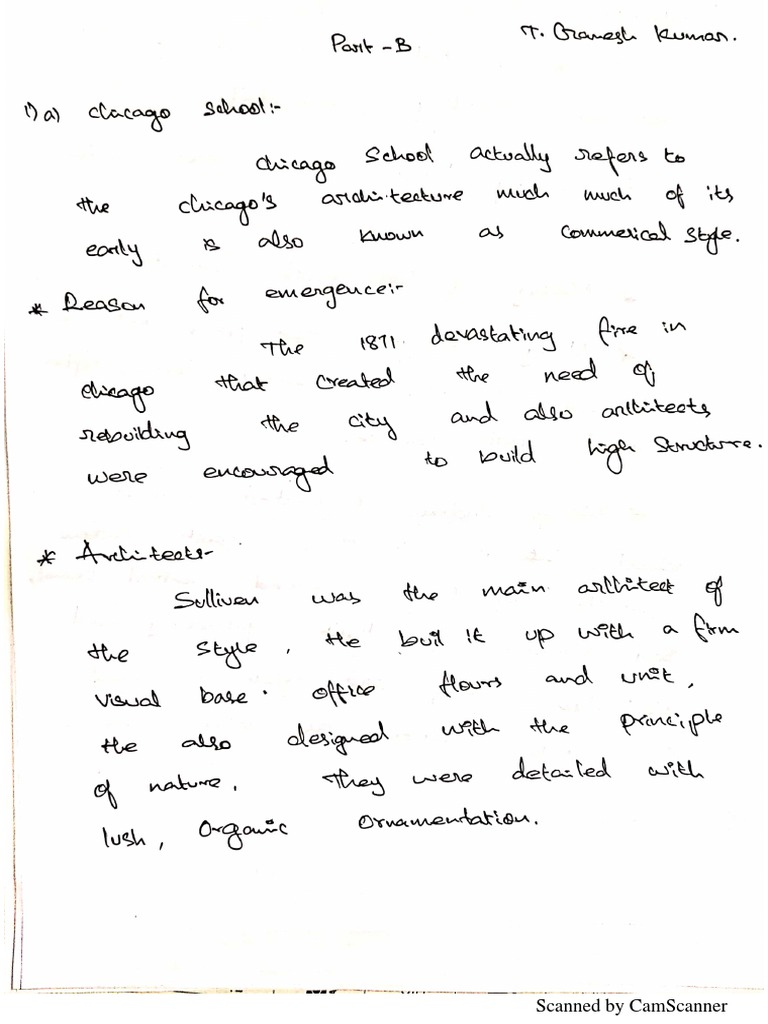 T. Gramesh Kumar.
Part - B
1) a) Chacago School:-
Chicago School actually refers to
the chicago's architecture much much of its
early is also known as commerical style.
* Reason for emergence:-
The 1871 devastating fire in
chicago that created the need of
rebuilding the city and also arthitects
were encouraged to build high structure.
* Architects-
Sulliven was the main arthitect of
the style, He buil it up with a firm
visual base. office flours and unit,
He also designed with the principle
of nature. They were detailed with
lush, Organic Ornamentation.
Scanned by CamScanner